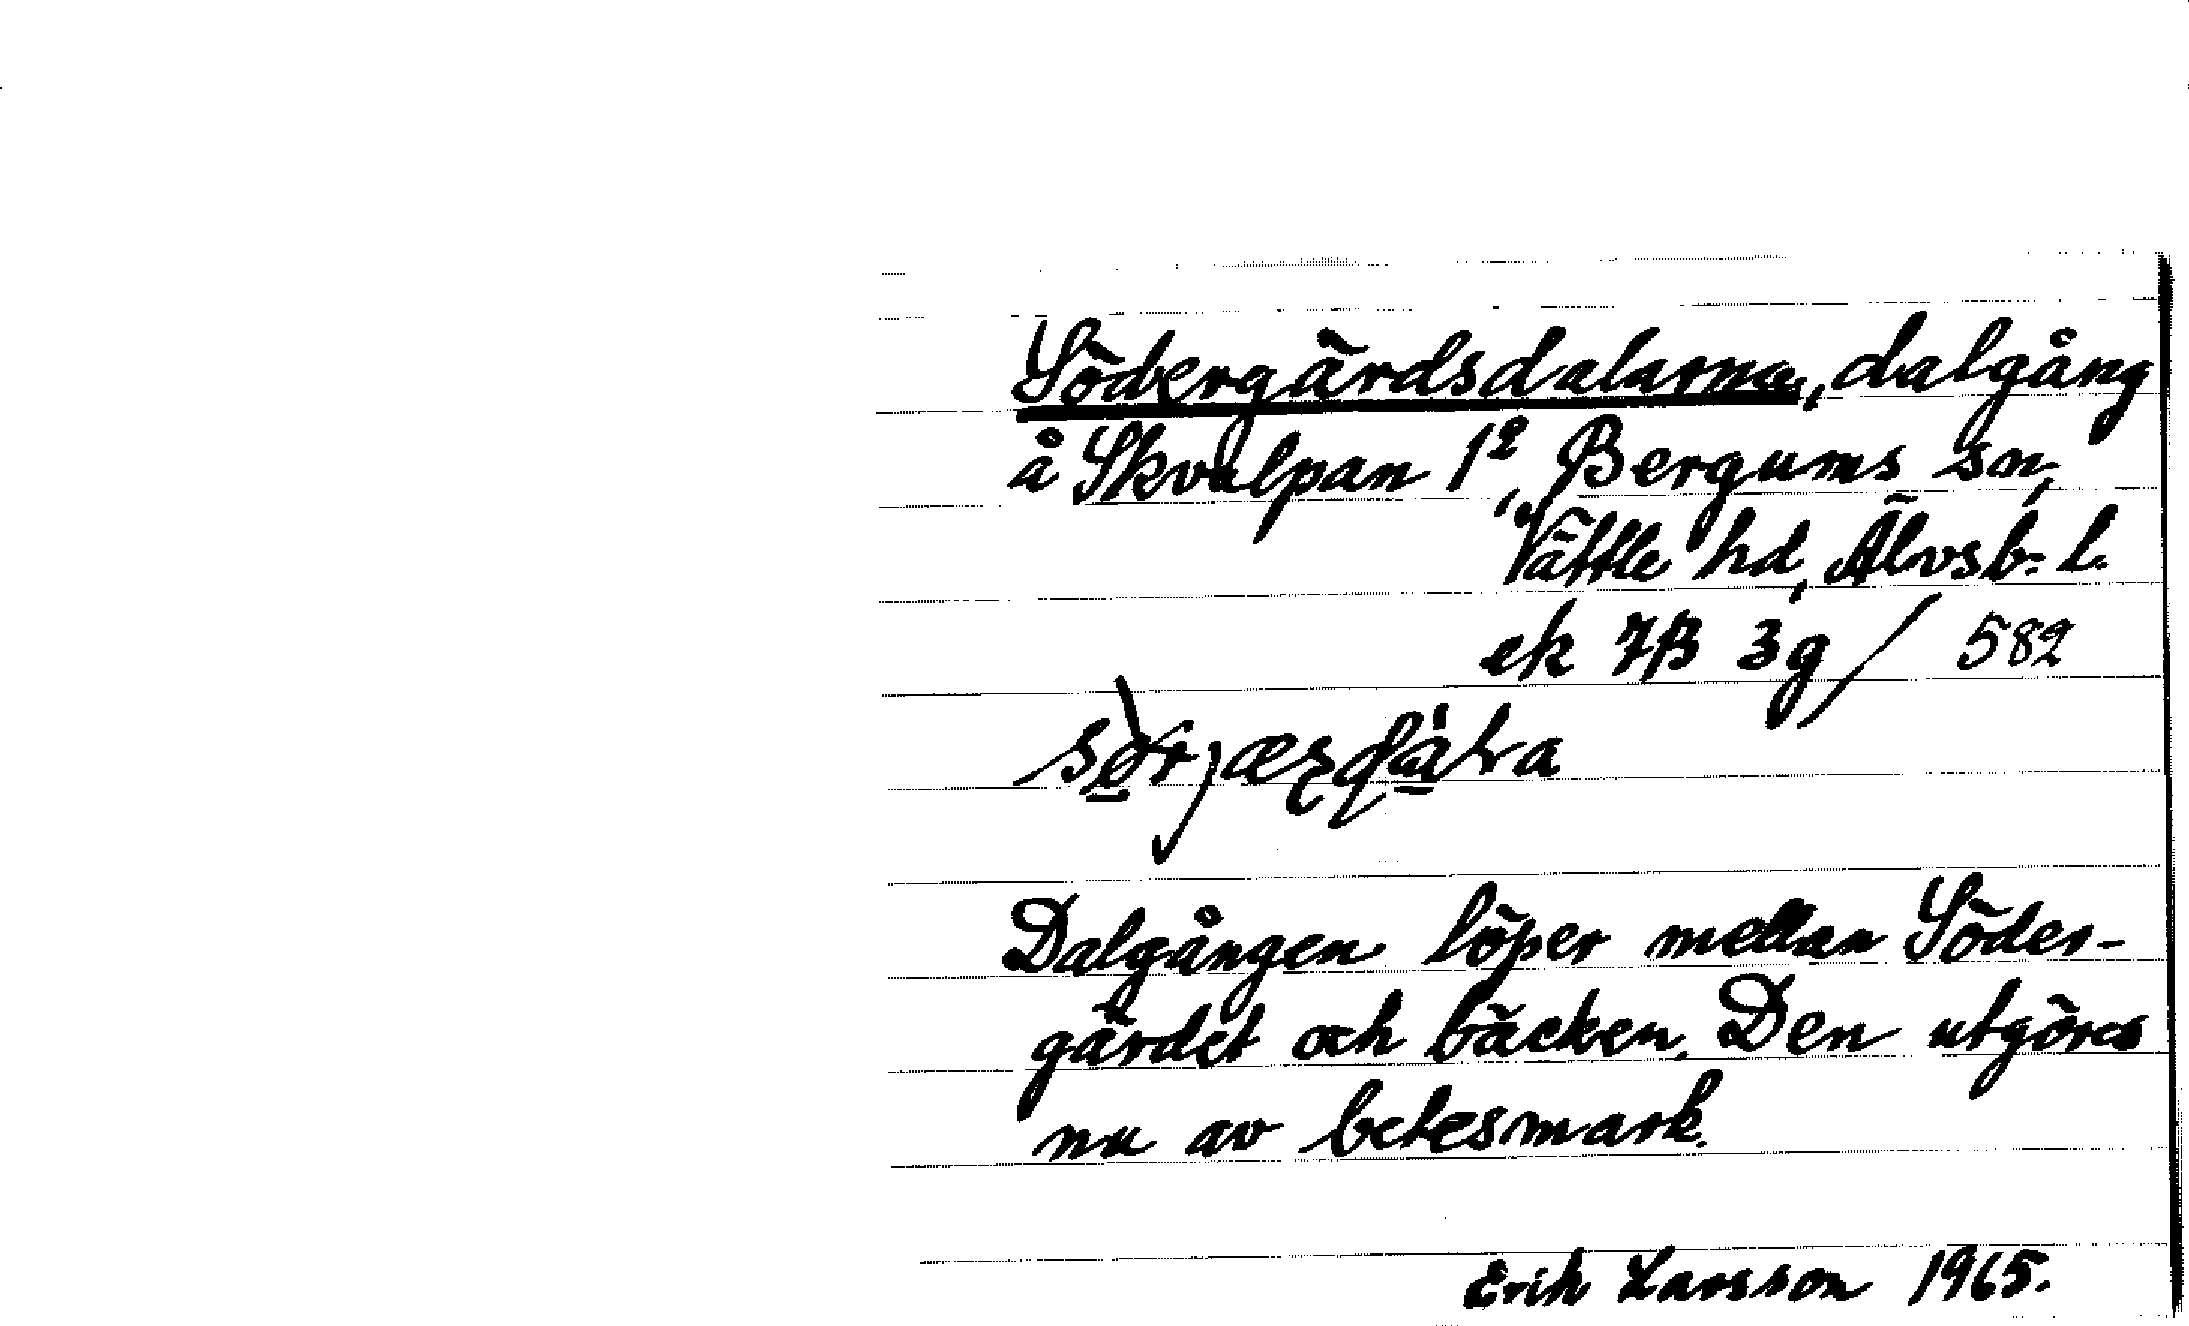 Södergärdsdalarna, dalgång
å Skvalpan 1², Bergums sn,
Vättle hd, Älvsb. l.
ek 7B 3g / 582
Dalgången löper mellan Söder-
gärdet och bäcken. Den utgöres
nu av betesmark.
Erik Larsson 1965.